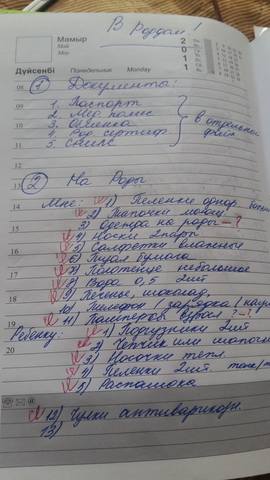 В Роддом!
Мамыр
Май
May
2011
Дүйсенбі Понедельник Monday
08 ① Документы:
09 1. Паспорт
2. Мед. полис
10 3. Обменка
4. Род. сертиф.
11 5. СНИЛС
в отдельном файл
12
13 ② На Роды
14 Мне: 1) Пеленки однор.
2) Тапочки моющ.
15 3) Одежда на роды - ?
4) Носки 2 пары
16 5) Салфетки влажные
6) Туал бумага
17 7) Полотенце небольшое
8) Вода 0,5 2 шт
18 9) Печенье, шоколад
10) Телефон / зарядка /
19 11) Памперс взросл ? - !
Ребенку: 1) Подгузники 2 шт
20 2) Чепчик или шапочка
3) Носочки тепл.
4) Пеленки 2 шт.
5) Распашонка
12) Чулки антиварикозн.
13)